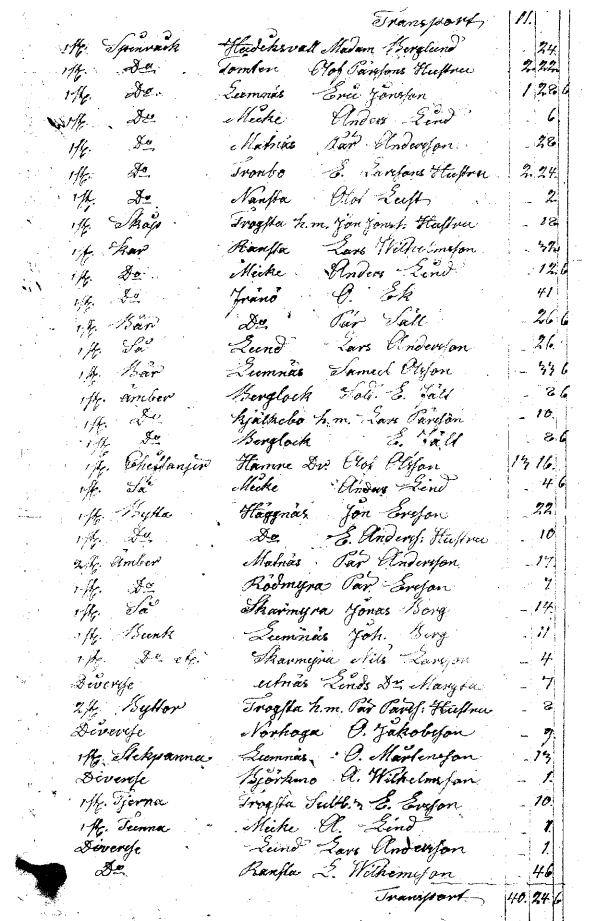 Transport 11.
1 st. Spinrock Hudiksvall Madam Berglund - 24
1 st. Do Tomten Olof Pärsons Hustru 2. 22
1 st. Do Lumnäs Eric Jonsson 1 28 6
1 st. Do Micke Anders Lind - 6
1 st. Do Matnäs Pär Andersson - 28
1 st. Do Tronbo E. Larssons Hustru 2. 24
1 st. Do Nansta Olof Lust - 2
1 st. Skåp Trogsta h.m. Jon Jonss. Hustru - 18
1 st. Kar Ransta Lars Wilhelmsson - 32
1 st. Do Micke Anders Lind - 12 6
1 st. Do Iränö O. Ek 41
1 st. Bår Do Pär Säll 26 6
1 st. Så Lund Lars Andersson - 26
1 st. Bår Lumnäs Samuel Olsson - 33 6
1 st. ämber Berglock Sold. E. Fält - 8 6
1 st. Do Kjälkebo h.m. Lars Pärsson - 10
1 st. Do Berglock E. Fält - 8 6
1 st. Hamre Dr. Olof Olsson 13 16
1 st. Så Micke Anders Lind - 4 6
1 st. Bytta Häggnäs Jon Ersson - 22
1 st. Do Do E. Anderss. Hustru - 10
2 st. ämber Matnäs Pär Andersson - 17
1 st. Do Rödmyra Pär Ersson - 7
1 st. Så Skarmyra Jonas Borg - 14
1 st. Bunk Lumnäs Joh. Berg - 11
1 st. Do etc. Skarmyra Nils Larsson - 4
Diverse utnäs Linds Dr Margta - 7
2 st. Byttor Trogsta h.m. Pär Pärss. Hustru - 8
Diverse Norhoga O. Jakobsson - 9
1 st. Stekpanna Lumnäs O. Mårtensson - 13
Diverse Björkmo A. Wilhelmsson - 1
1 st. Tjerna Trogsta E. Ersson - 10
1 st. Tunna Micke A. Lind - 1
Diverse Lund Lars Andersson - 1
Do Ransta L. Wilhemsson - 46
Transport 40. 24 6